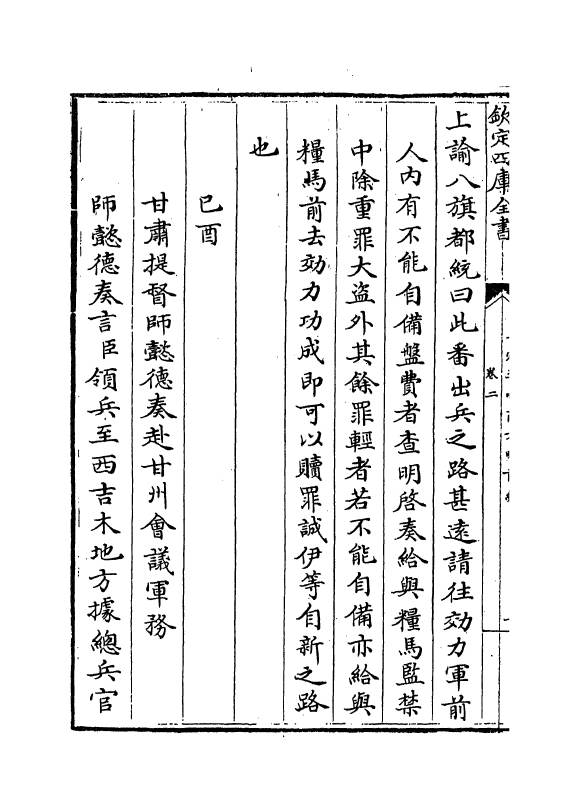 欽定四庫全書
卷二
上諭八旗都統曰此番出兵之路甚遠請往効力軍前
人內有不能自備盤費者查明啓奏給與糧馬監禁
中除重罪大盜外其餘罪輕者若不能自備亦給與
糧馬前去効力功成即可以贖罪誠伊等自新之路
也
己酉
甘肅提督師懿德奏赴甘州會議軍務
師懿德奏言臣領兵至西吉木地方據總兵官